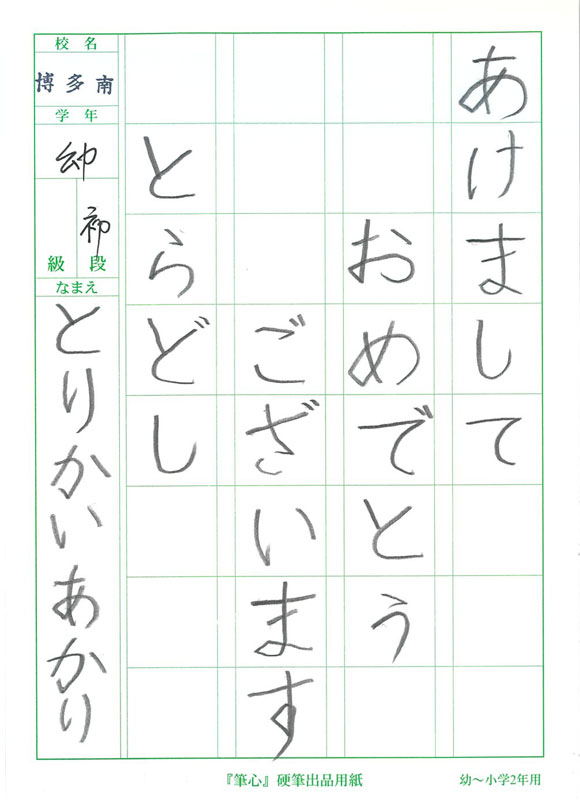 あけまして
おめでとう
ございます
とらどし
校名
博多南
学年
幼
級
初段
なまえ
とりかいあかり
『筆心』硬筆出品用紙
幼〜小学2年用